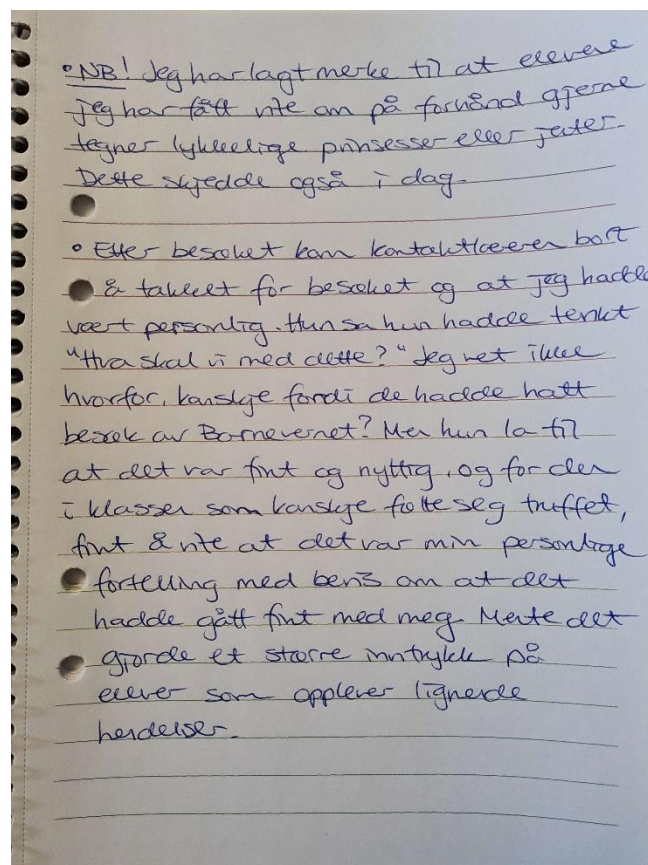 • NB! Jeg har lagt merke til at elevene
jeg har fått vite om på forhånd gjerne
tegner lykkelige prinsesser eller jenter.
Dette skjedde også i dag.
• Etter besøket kom kontaktlæreren bort
& takket for besøket og at jeg hadde
vært personlig. Hun sa hun hadde tenkt
"Hva skal vi med dette?" Jeg vet ikke
hvorfor, kanskje fordi de hadde hatt
besøk av Barnevernet? Men hun la til
at det var fint og nyttig, og for den
i klassen som kanskje følte seg truffet,
fint & vite at det var min personlige
fortelling med bevis om at det
hadde gått fint med meg. Mente det
gjorde et større inntrykk på
elever som opplever lignende
hendelser.